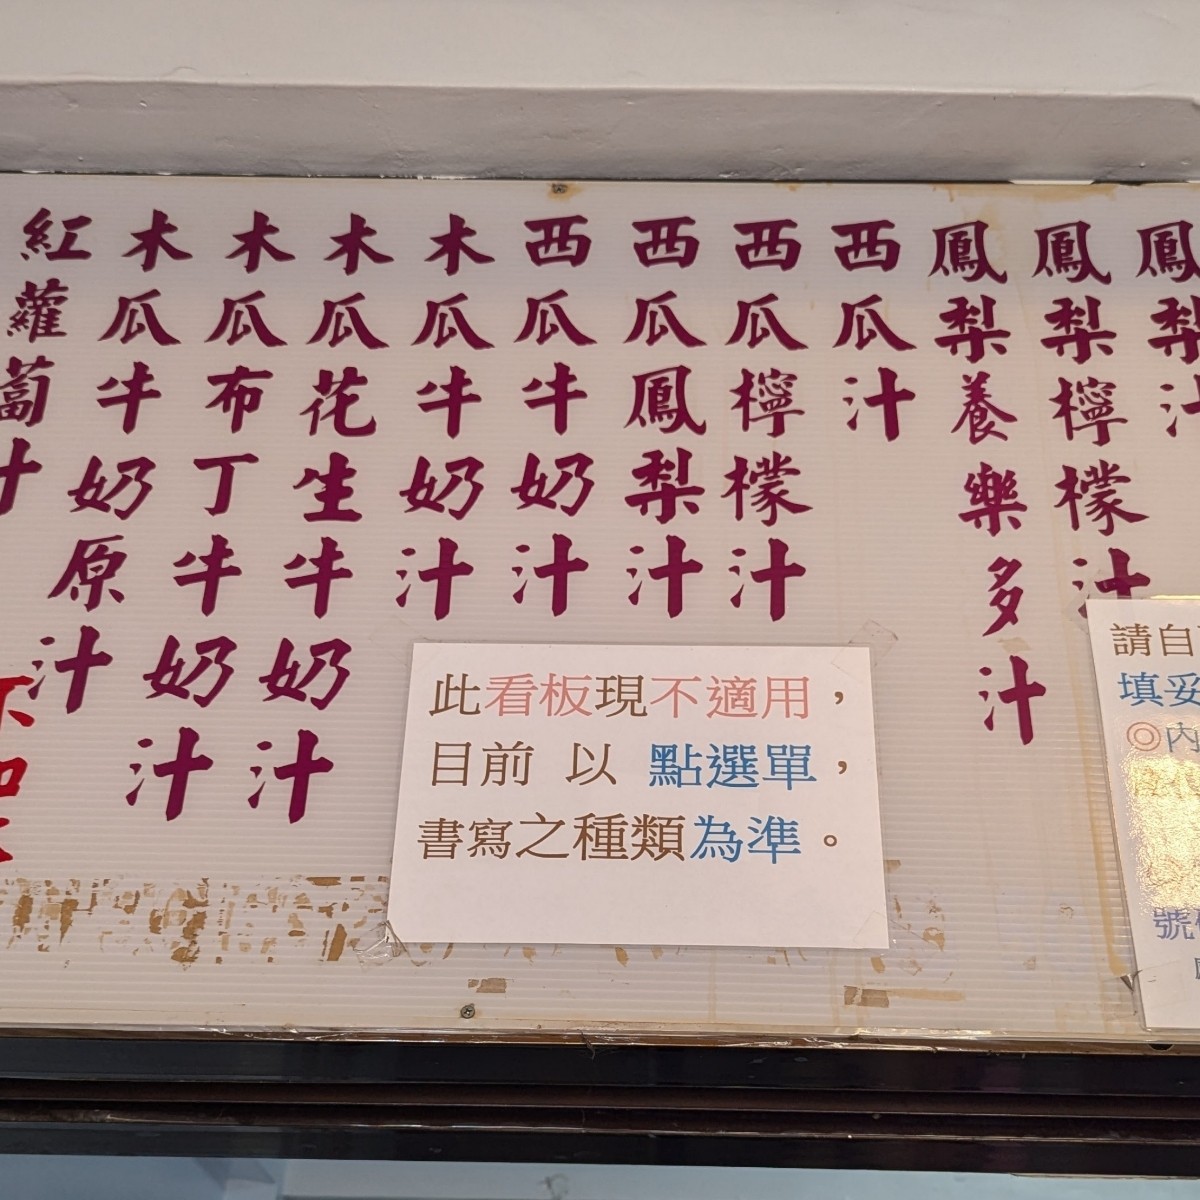 鳳梨汁
鳳梨檸檬汁
鳳梨養樂多汁
西瓜汁
西瓜檸檬汁
西瓜鳳梨汁
西瓜牛奶汁
木瓜牛奶汁
木瓜花生牛奶汁
木瓜布丁牛奶汁
木瓜牛奶原汁
紅蘿蔔汁
此看板現不適用，
目前 以 點選單，
書寫之種類為準。
請自
填妥
◎內
號